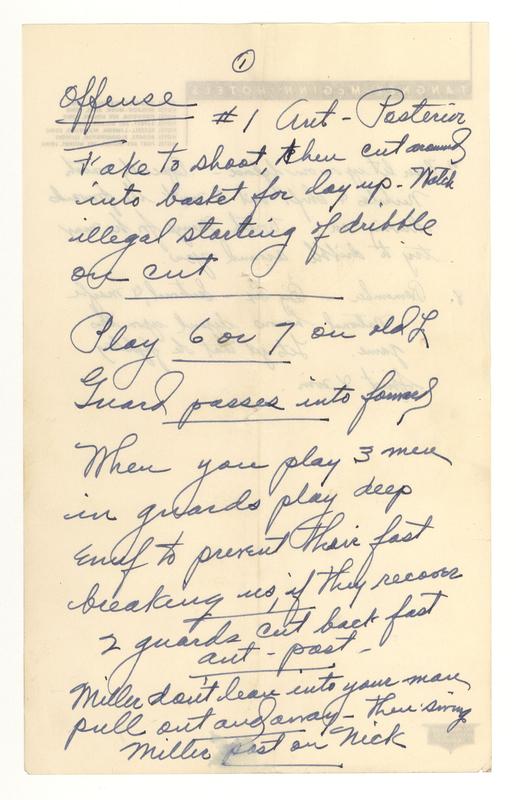 ①
Offense #1 Ant-Posterior
Fake to shoot, then cut around
into basket for lay up - Watch
illegal starting of dribble
on cut
Play 6 or 7 on old
Guard passes into forward
When you play 3 men
in guards play deep
enuf to prevent their fast
breaking us, if they recover
2 guards cut back fast
ant - post -
Miller don't lean into your man
pull out and away - then swing
Miller post on Nick